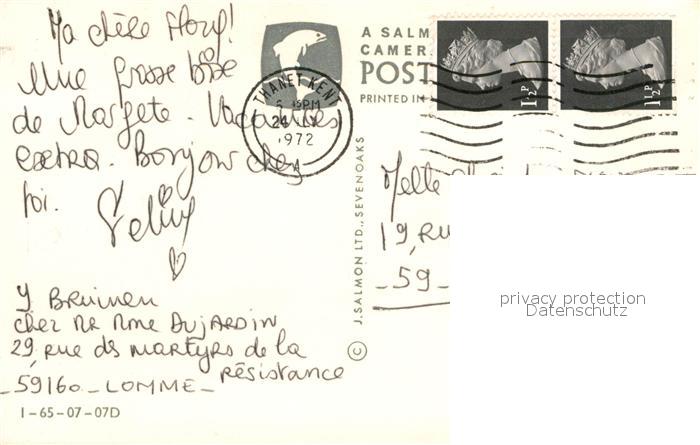 Ma chère Flory!
Une grosse bise
de Margete. Vacances
extra. Bonjour chez
toi.
Y Bruinen
chez Mr Mme Dujardin
29, rue ds martyrs de la
résistance
_59160_LOMME_
1-65-07-07D
A SALM
CAMER
POST
PRINTED IN
THANET KENT
5 45PM
24
1972
A
1½P
1½P
© J. SALMON LTD., SEVENOAKS
Melle
19, RU
_59_
privacy protection
Datenschutz